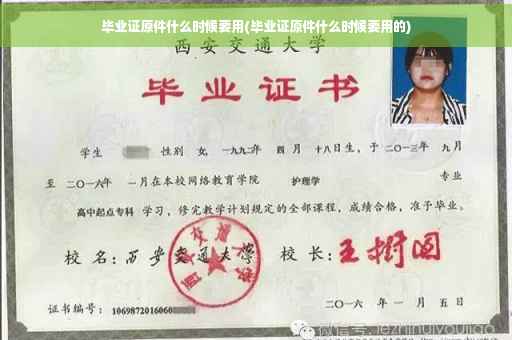 毕业证原件什么时候要用(毕业证原件什么时候要用的)
西安交通大学
毕业证书
学生 性别 女, 一九九二年 四月 十八日生, 于二〇一三年 九月
至 二〇一六年 一月在本校网络教育学院 护理学 专业
高中起点专科 学习, 修完教学计划规定的全部课程, 成绩合格, 准予毕业。
校名: 西安交通大学 校长: 王树国
西安交通大学
证书编号: 1069872016060
二〇一六年一月五日
微信号: jiezhinuiyoujiao